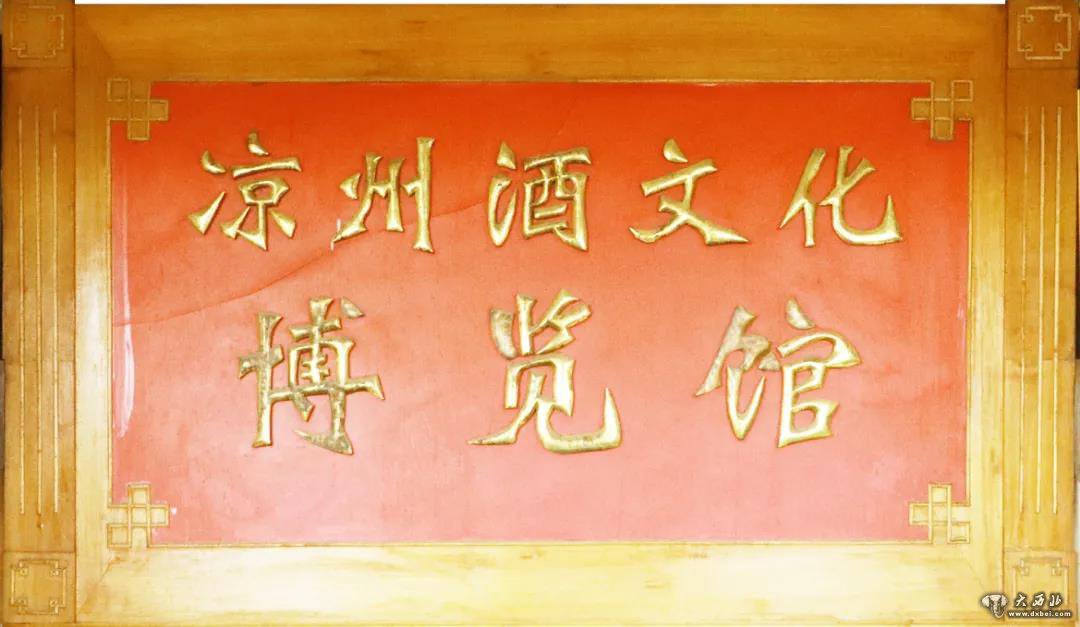 凉州酒文化
博览馆
大西北
www.dxbei.com